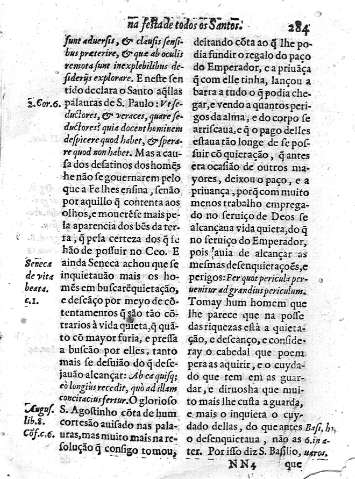 na festa de todos os Santos. 284
sunt aduersis, & clausis sensi-
bus præterire, & quæ ab oculis
remota sunt inexplebilibus de-
siderijs explorare. E neste sen
tido declara o Santo aq̃llas
2. Cor. 6. palauras de S. Paulo: Vt se-
ductores, & veraces, quare se-
ductores? quia docent hominem
despicere quod habet, & spera-
re quod non habet. Mas a cau-
sa dos desatinos dos homẽs
he não se gouernarem pelo
que a Fe lhes ensina, senão
por aquillo q̃ contenta aos
olhos, e mouerẽse mais pe-
la aparencia dos bẽs da ter-
ra, q̃ pela certeza dos q̃ se
hão de possuir no Ceo. E
Seneca ainda Seneca achou que se
de vita inquietauão mais os ho-
beata. mẽs em buscarẽ quietação,
c. 1. e descãço por meyo de cõ-
tentamentos q̃ são tão cõ-
trarios à vida quieta, q̃ quã-
to cõ mayor furia, e pressa
a buscão por elles, tanto
mais se desuião do q̃ dese-
jauão alcançar: Ab ea quisq;
eò longius recedit, quò ad illam
concitatius fertur. O glorioso
August. S. Agostinho cõta de hum
lib. 8. cortesão auisado nas pala-
Cõf. c. 6. uras, mas muito mais na re-
solução q̃ consigo tomou,
deitando cõta ao q̃ lhe po-
dia fundir o regalo do paço
do Emperador, e a priuãça
q̃ com elle tinha, lançou a
barra a tudo o q̃ podia che-
gar, e vendo a quantos peri-
gos da alma, e do corpo se
arriscaua, e q̃ o pago delles
estaua tão longe de se pos-
suir cõ quietação, q̃ antes
era ocasião de outros ma-
yores, deixou o paço, e a
priuança, porq̃ com muito
menos trabalho emprega-
do no seruiço de Deos se
alcançaua vida quieta, do q̃
no seruiço do Emperador,
pois auia de alcançar as
mesmas desenquietaçoẽs, e
perigos: Per quot pericula per-
uenitur ad grandius periculum.
Tomay hum homem que
lhe parece que na posse
das riquezas está a quieta-
ção, e descanço, e conside-
ray o cabedal que poem
pera as aquirir, e o cuyda-
do que tem em as guar-
dar, e dirnosha que mui-
to mais lhe custa a guarda,
e mais o inquieta o cuy-
dado dellas, do que antes Basi. hi,
o desenquietaua, não as 6. in a-
ter. Por isso diz S. Basilio, uaros.
NN4 que